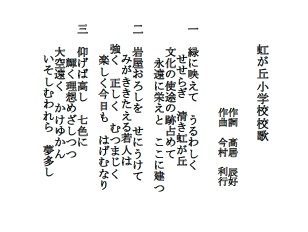 虹が丘小学校校歌
作詞 高居 辰好
作曲 今村 利行
一 緑に映えて うるわしく
せせらぎ 清き虹が丘
文化の使途の跡占めて
永遠に栄えと ここに建つ
二 岩屋おろしを せにうけて
みがききたえる若人は
強く 正しく むつまじく
楽しく今日も はげむなり
三 仰げば高し 七色に
輝く理想めざしつつ
大空遠く かけゆかん
いそしむわれら 夢多し